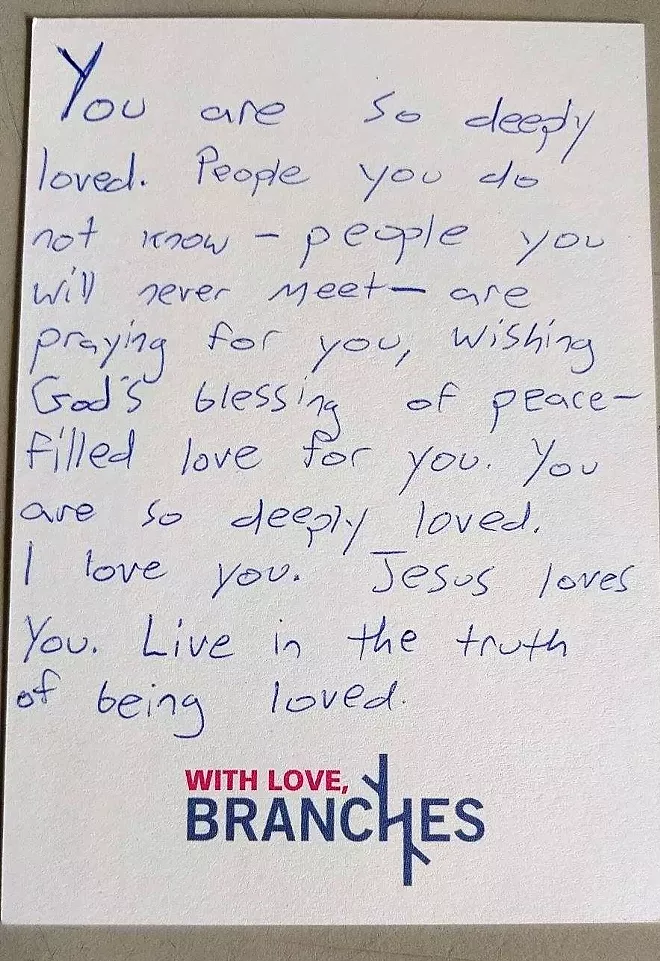 You are so deeply
loved. People you do
not know – people you
will never meet – are
praying for you, wishing
God's blessing of peace-
filled love for you. You
are so deeply loved.
I love you. Jesus loves
You. Live in the truth
of being loved.
WITH LOVE,
BRANCHES